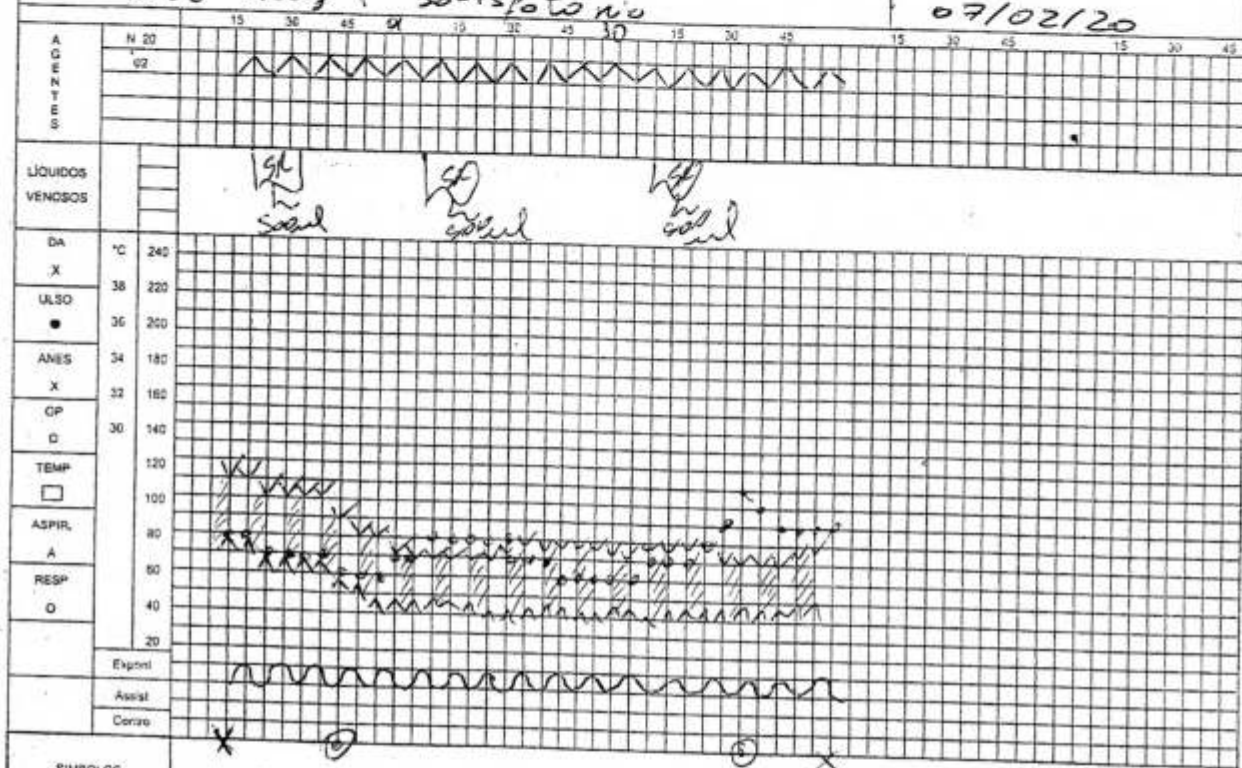 07/02/20
15 30 45 15 45 30 15 30 45 15 30 45 15 30 45
AGENTES
N 20
02
LÍQUIDOS
VENOSOS
SRL
500ml
500ml
500ml
DA
X
ULSO
●
ANES
X
OP
TEMP
□
ASPIR.
A
RESP
O
°C
38
36
34
32
30
240
220
200
180
160
140
120
100
80
60
40
20
Espont
Assist
Contro
X
X
SIMBOLOS